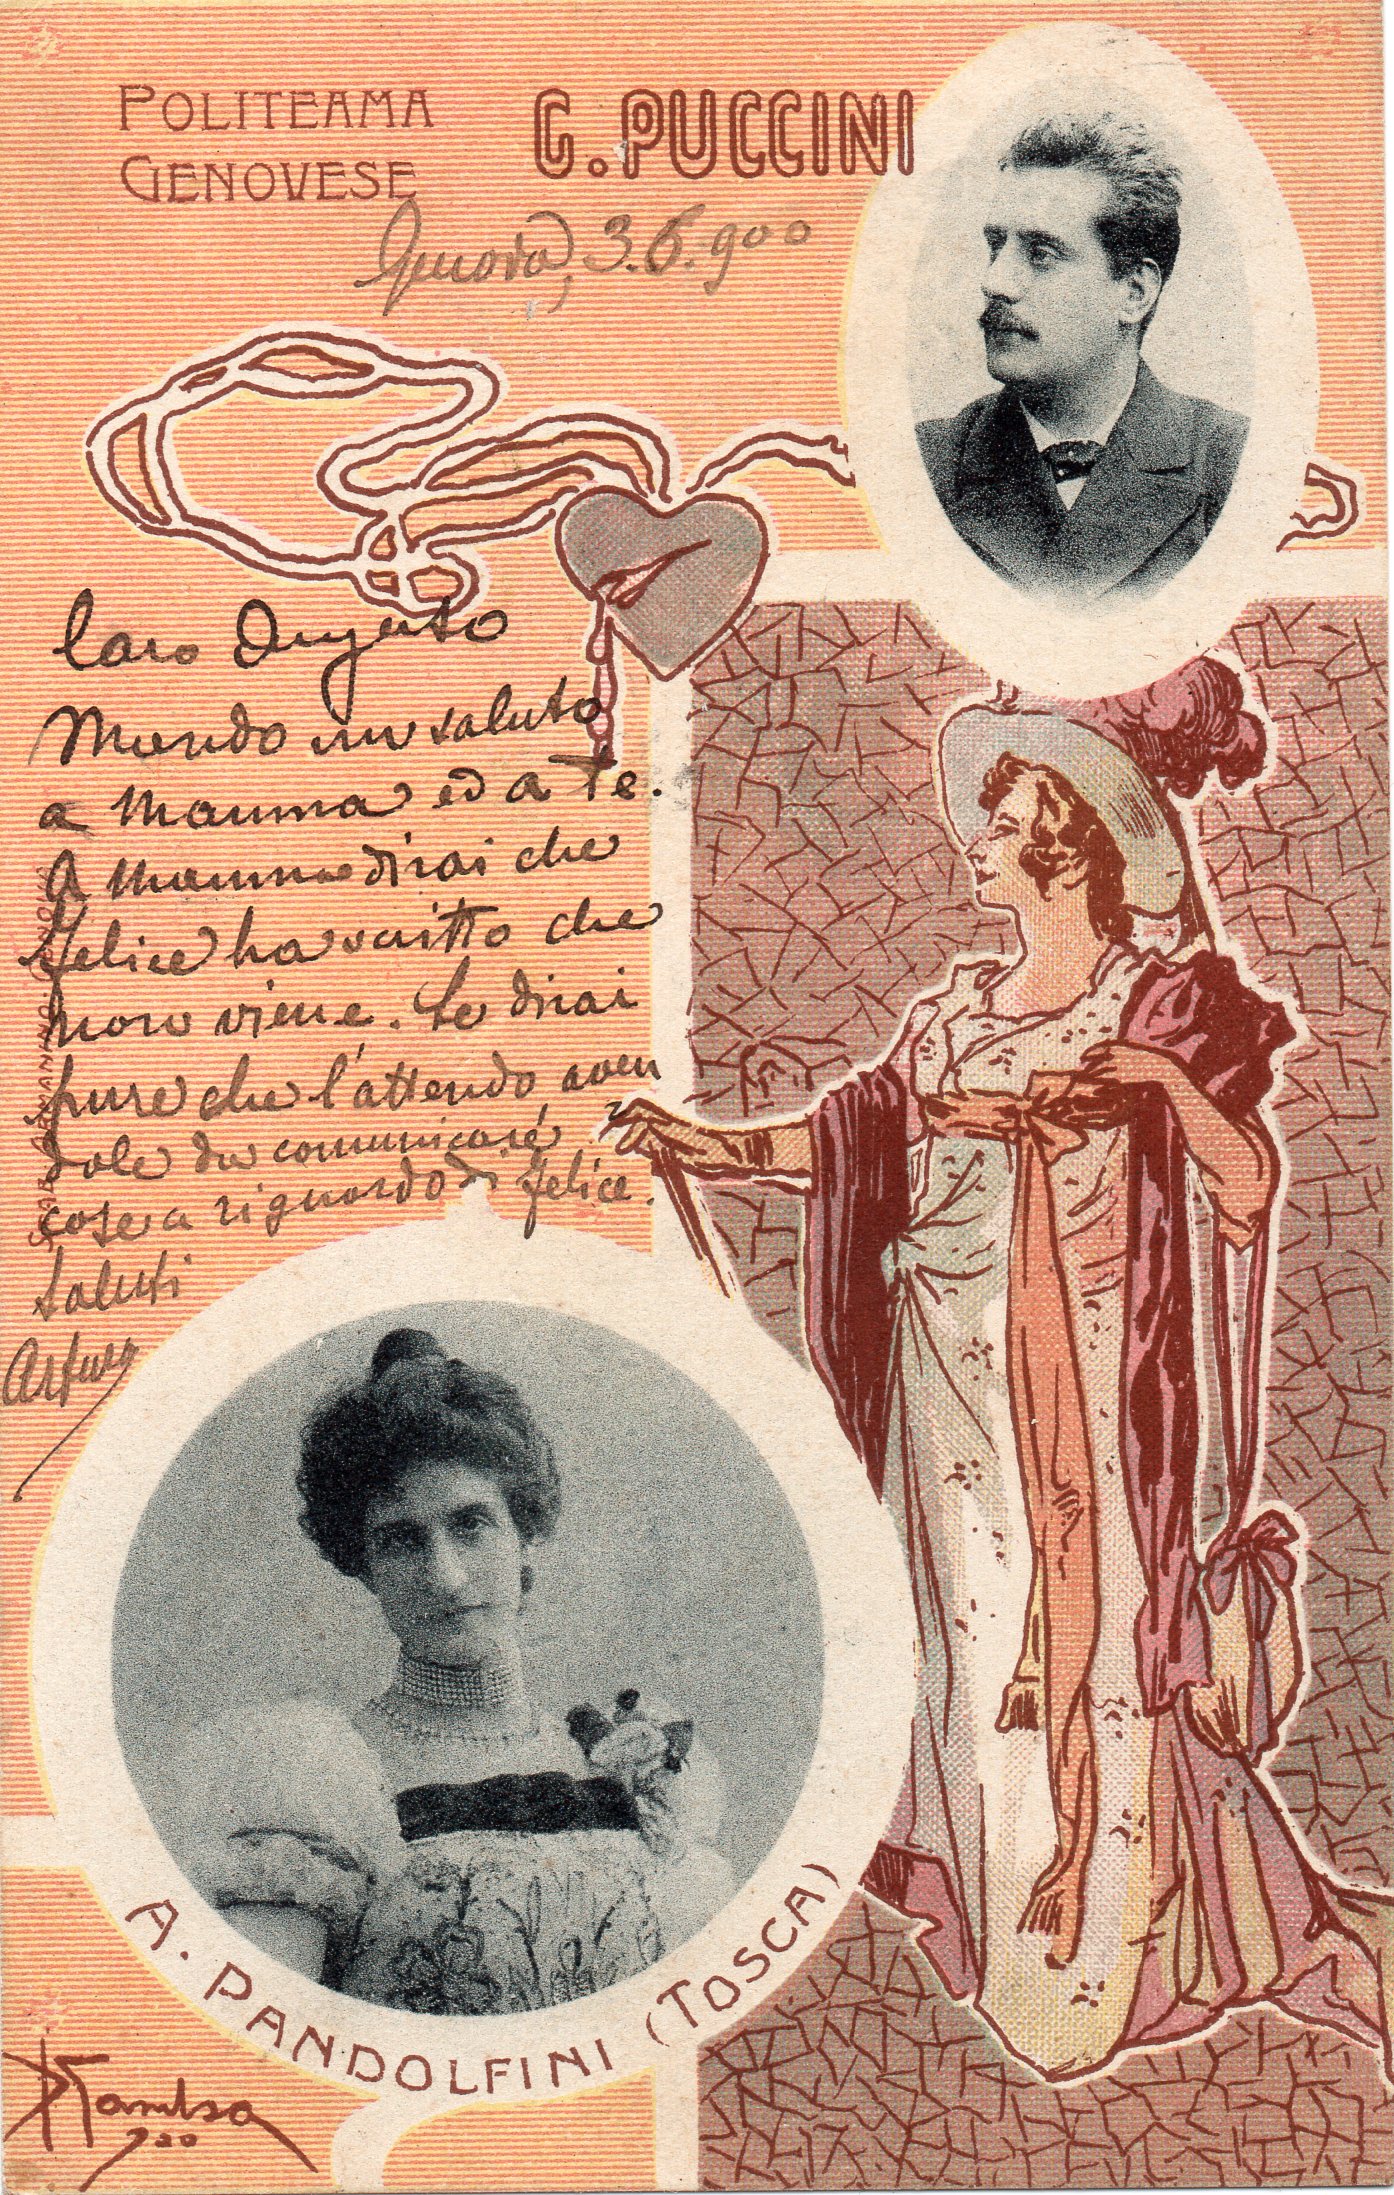 POLITEAMA
GENOVESE
G. PUCCINI
Genova, 3.6.900
Caro Augusto
Mando un saluto
a Mamma ed a te.
A Mamma dirai che
Felice ha scritto che
non viene. Le dirai
pure che l'attendo aven
dole da comunicare
cose a riguardo di Felice.
Saluti
Arturo
A. PANDOLFINI (TOSCA)
900